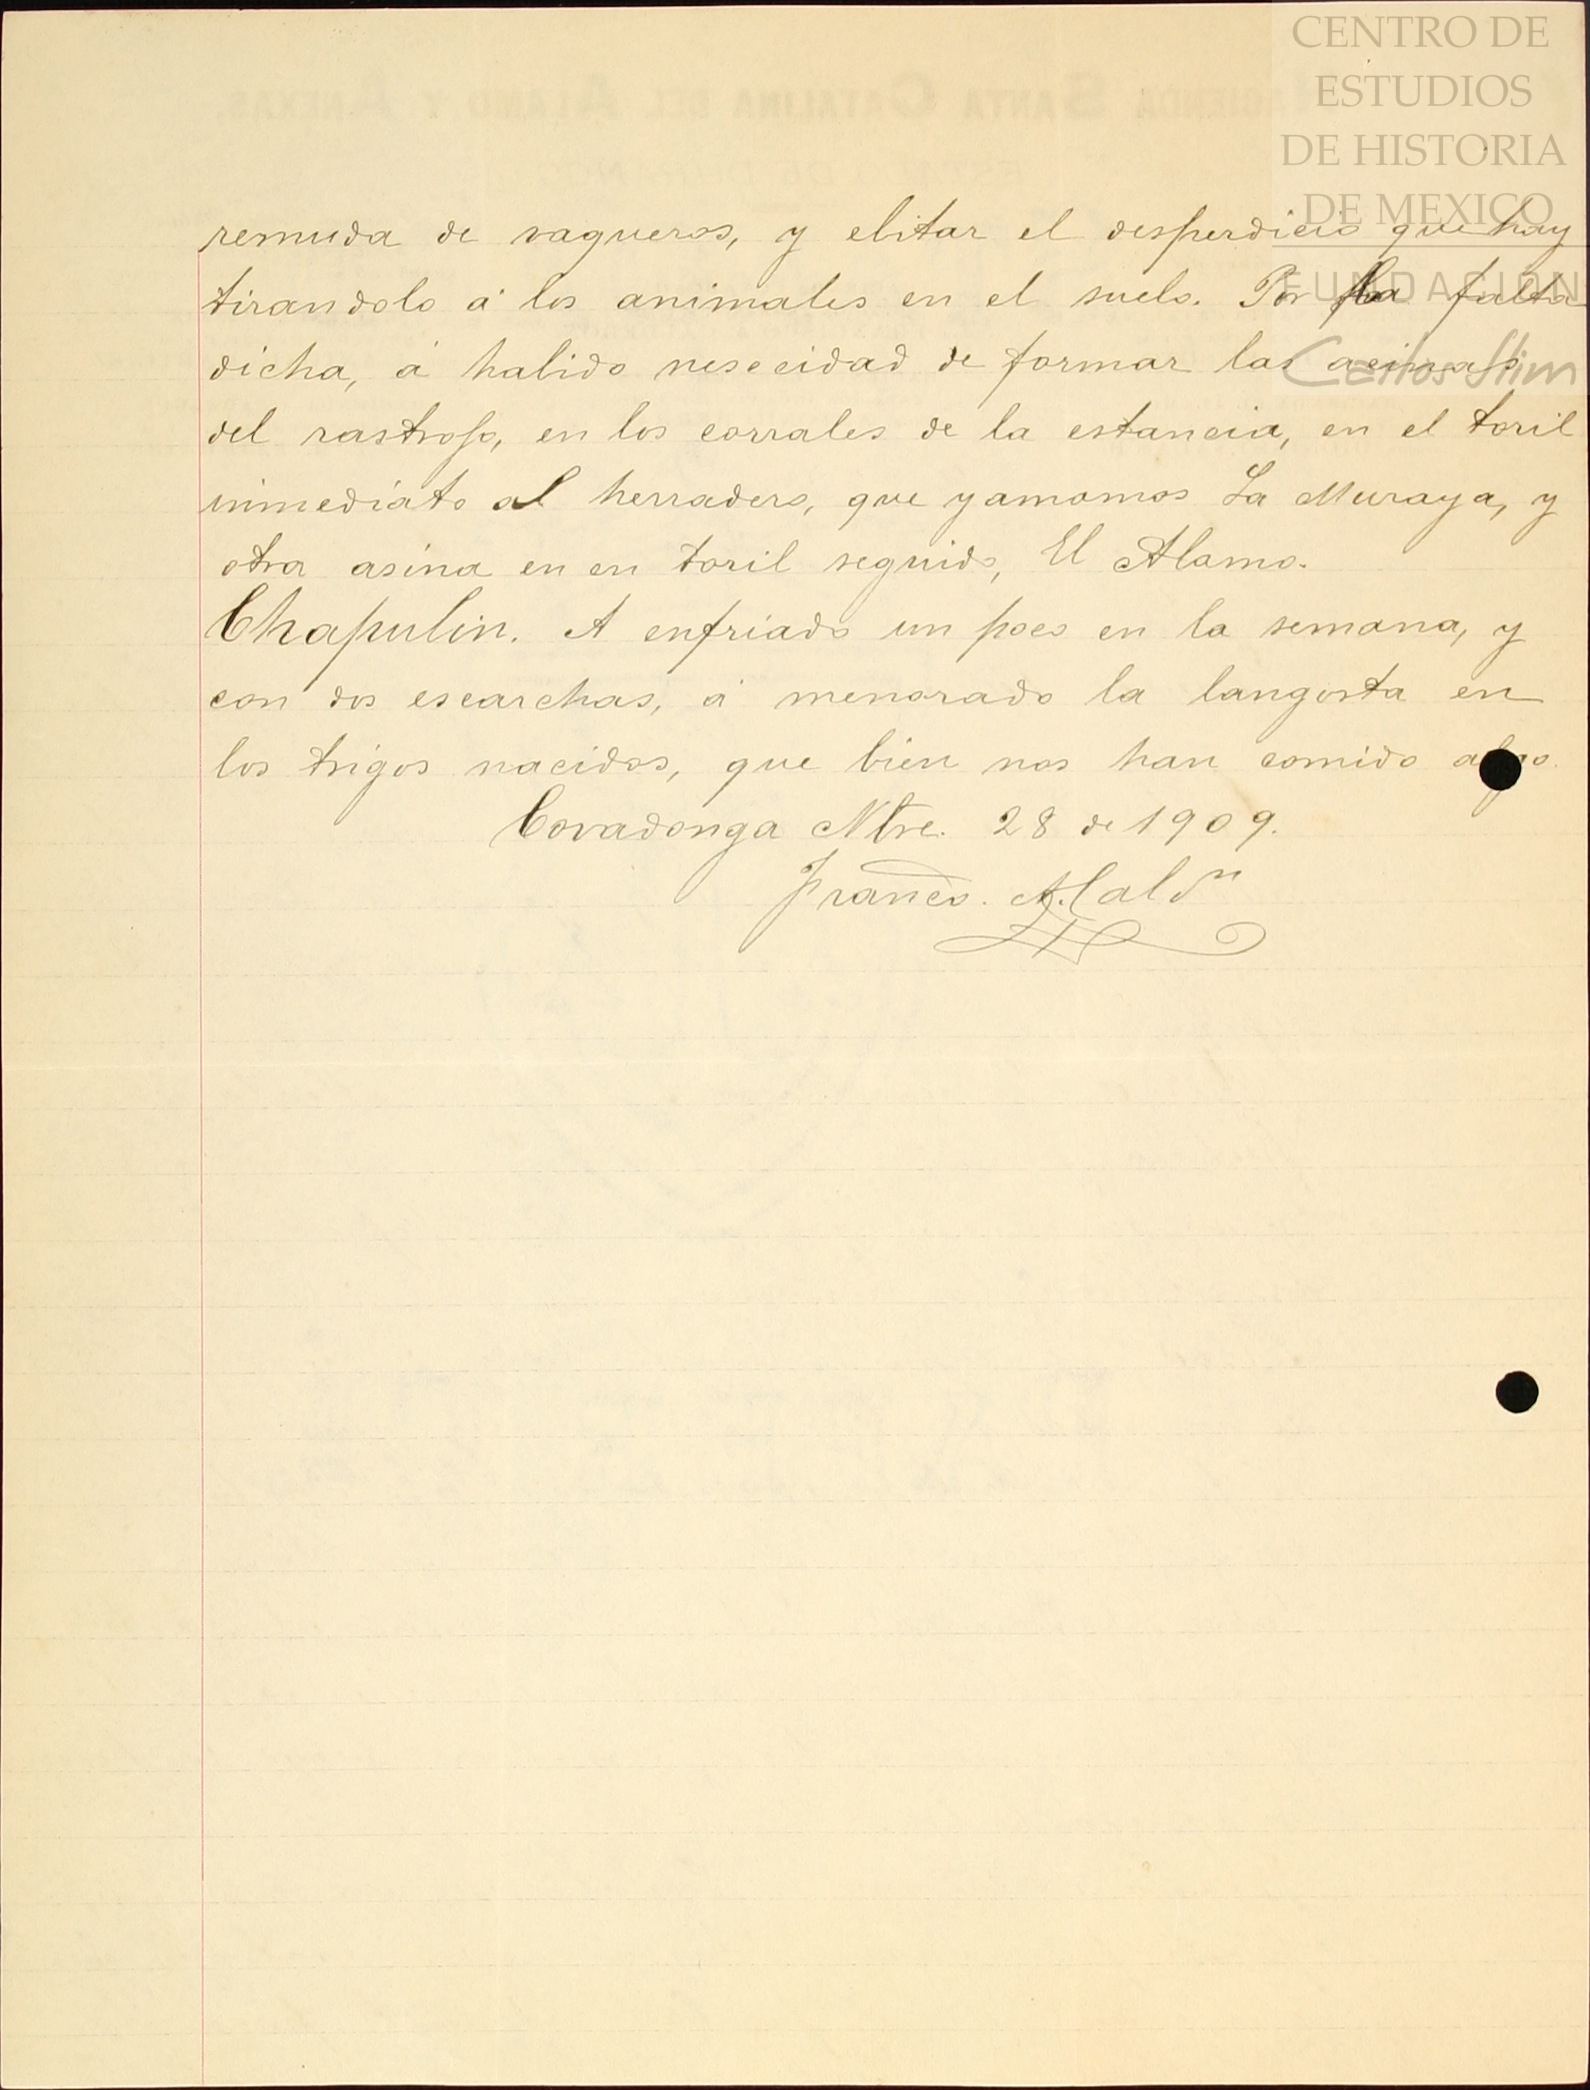 CENTRO DE
ESTUDIOS
DE HISTORIA
DE MEXICO
FUNDACIÓN
Carlos Slim
remuda de vaqueros, y elitar el desperdicio que hay
tirandolo á los animales en el suelo. Por la falta
dicha, á habido nesecidad de formar las acinas
del rastrojo, en los corrales de la estancia, en el toril
inmediato al herradero, que yamamos La Muraya, y
otra asina en en toril seguido, El Alamo.
Chapulin. A enfriado un poco en la semana, y
con dos escarchas, á menorado la langosta en
los trigos nacidos, que bien nos han comido algo.
Covadonga Nbre. 28 de 1909.
Franco.